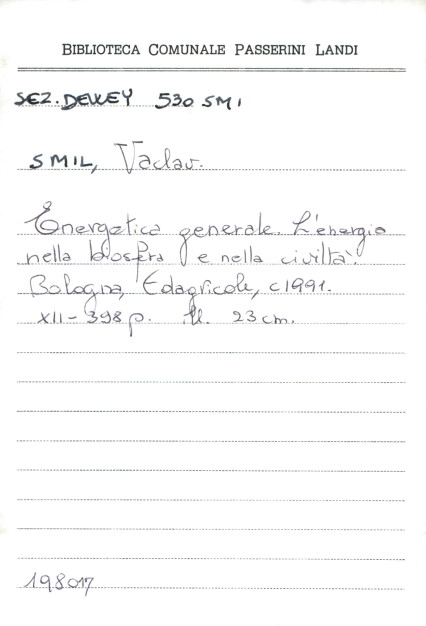 BIBLIOTECA COMUNALE PASSERINI LANDI
SEZ. DEWEY 530 SMI
SMIL, Vaclav.
Energetica generale. L'energia
nella biosfera e nella civiltà.
Bologna, Edagricole, c1991.
XII-398 p. ill. 23 cm.
198017